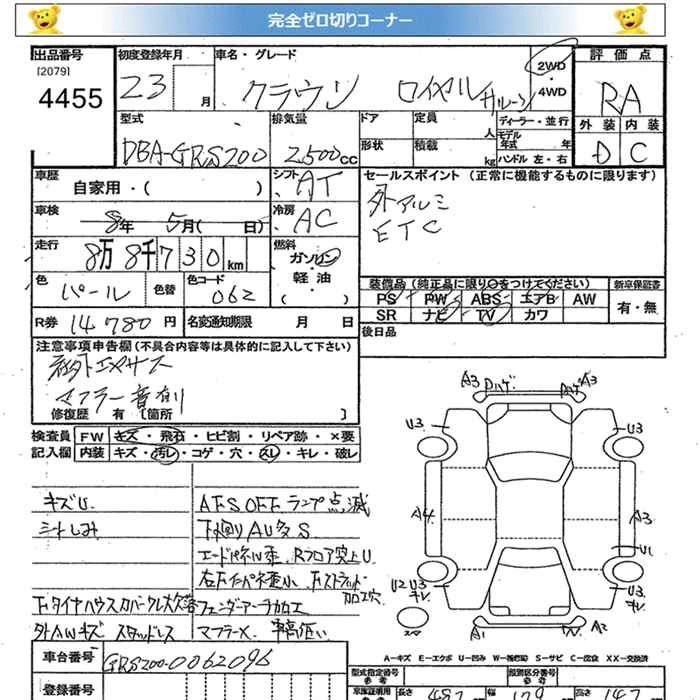 完全ゼロ切りコーナー
出品番号 初度登録年月 車名・グレード 2WD 評価点
[2079] 23 月 クラウン ロイヤルサルーン ・
4455 4WD RA
型式 排気量 ドア 定員 人 ディーラー・並行 外装 内装
DBA-GRS200 2,500cc 形状 積載 kg モデル年式 年 D C
ハンドル 左・右
車歴 シフト AT セールスポイント (正常に機能するものに限ります)
自家用・( ) 外アルミ
車検 8年 5月( 日) 冷房 AC ETC
走行 8万 8千730km 燃料
ガソリン
色 パール 色替 色コード 062 軽油 装備品(純正品に限り○をつけてください) 新車保証書
( ) PS PW ABS エアB AW 有・無
R券 14780円 名変通知期限 月 日 SR ナビ TV カワ
注意事項申告欄(不具合内容等は具体的に記入して下さい) 後日品
社外エアサス
マフラー音有り
修復歴 有 [箇所 ]
検査員 FW キズ・飛石・ヒビ割・リペア跡・×要
記入欄 内装 キズ・汚レ・コゲ・穴・スレ・キレ・破レ
A3 ハゲ ハゲ A3
U3 U3
キズU. AFS OFF ランプ点滅
シートしみ 下廻りAU多S A4 A3
U1
U2 U3 U3
加工穴
外AWキズ スタッドレス マフラーX. 車高低い
スペ
A1 A2
A-キズ E-エクボ U-凹み W- S-サビ C-腐食 XX-交換済
車台番号 GRS200-0062096
登録番号 型式指定番号 類別区分番号
長さ 487 幅 179 高さ 147